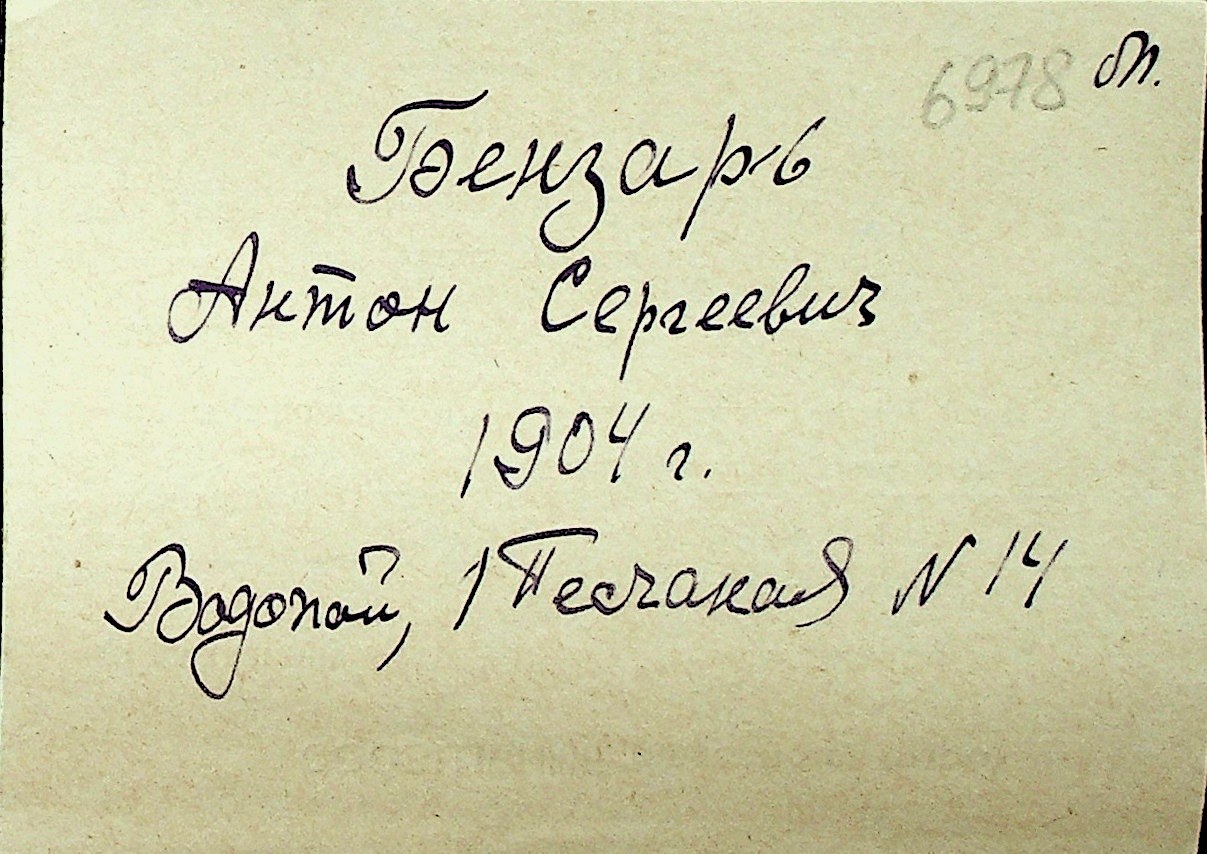 6978 оп.
Бензарь
Антон Сергеевич
1904 г.
Водопой, 1 Песчаная N 14